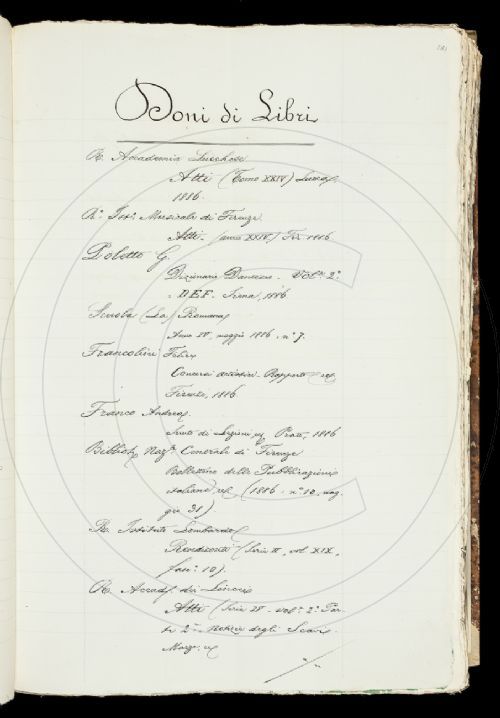 Doni di Libri
R. Accademia Lucchese
Atti (Tomo XXIV) Lucca,
1886.
R. Ist. Musicale di Firenze
Atti. (anno XXIV) Fir. 1886
Poletto G.
Dizionario Dantesco. Vol. 2.
- DEF. Siena, 1886
Scuola (La) Romana
Anno IV, maggio 1886. n. 7.
Francolini Felice
Concorsi artistici. Rapporto
Firenze, 1886
Franco Andrea
di Lezioni Prato, 1886
Bibliot. Naz. Centrale di Firenze
Bollettino delle Pubblicazioni
italiane, (1886. n. 10, mag-
gio 31)
R. Istituto Lombardo
Rendiconti (Serie II, vol. XIX,
fasc. 10).
R. Accad. dei Lincei
Atti (Serie IV. Vol. 2. Par-
te 2. Notizie degli Scavi.
Marzo,